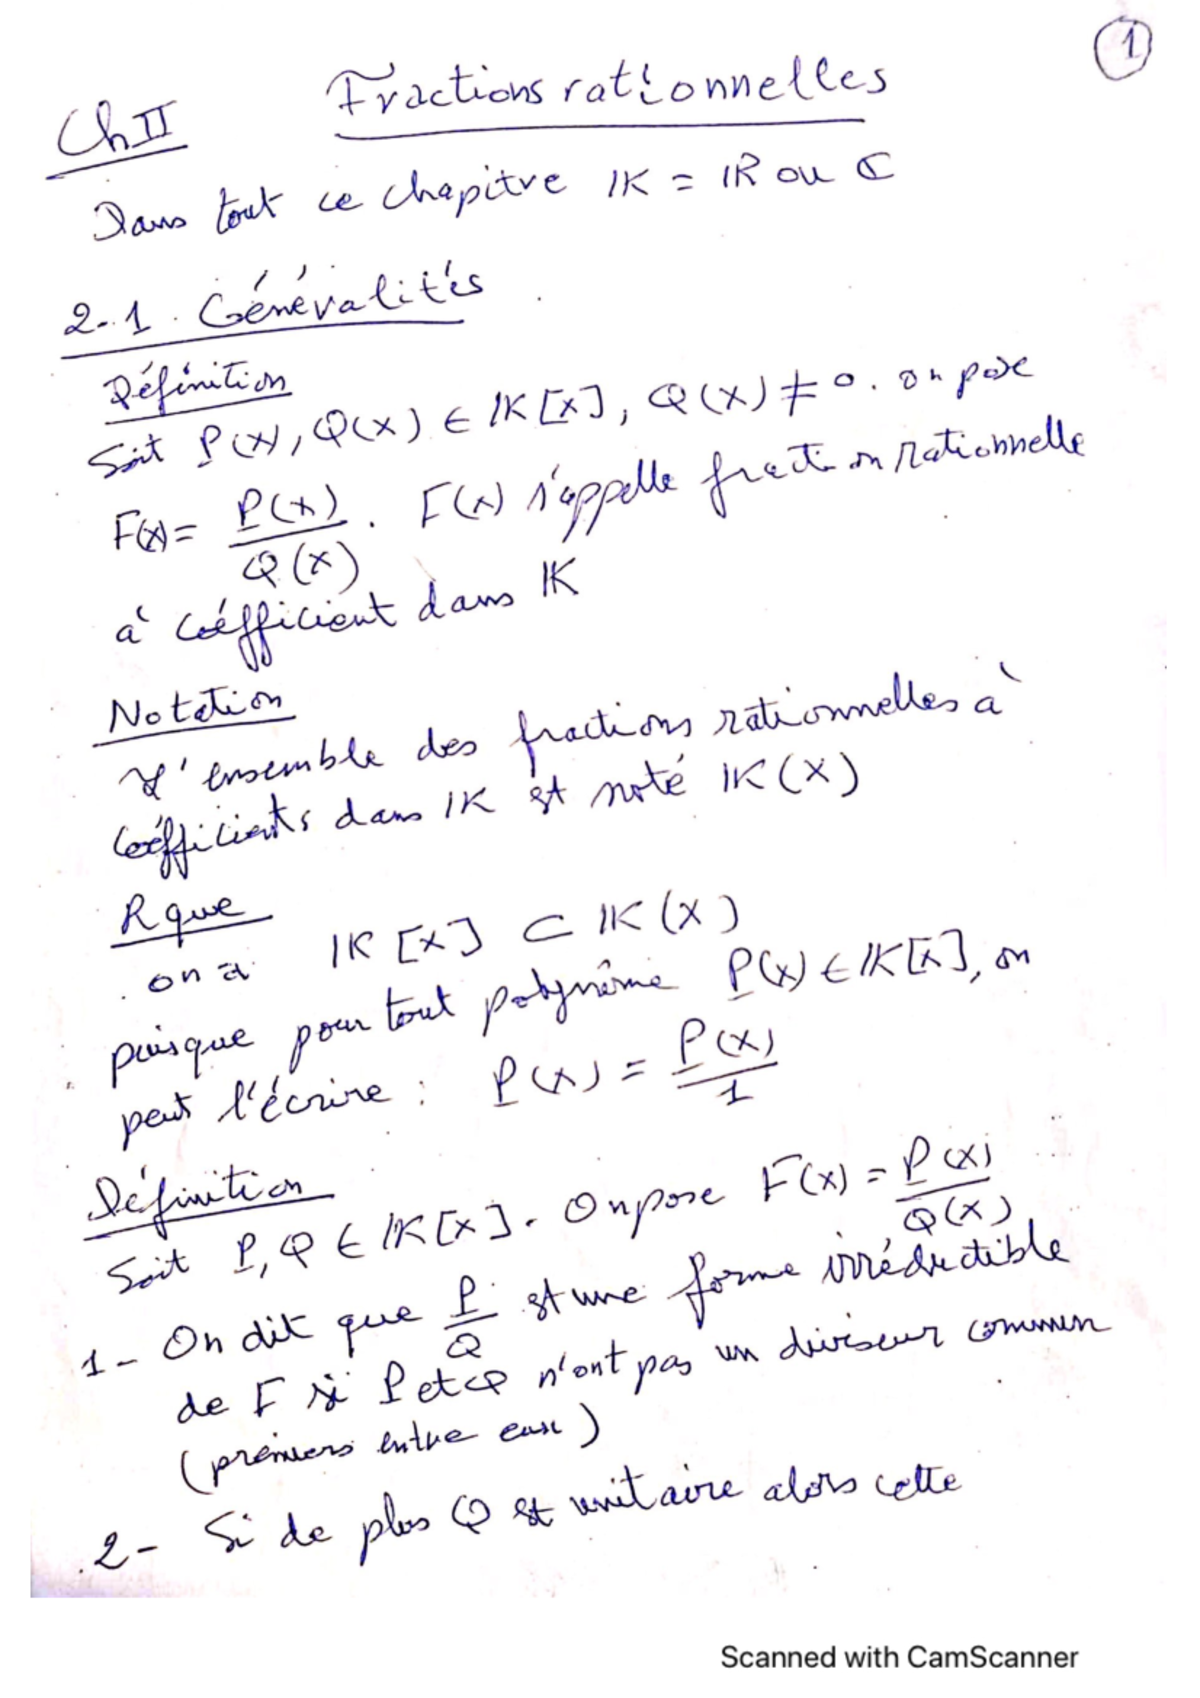 1
Ch II Fractions rationnelles
Dans tout ce chapitre IK = IR ou ℂ
2-1. Généralités
Définition
Soit P(X), Q(X) ∈ IK[X], Q(X) ≠ 0. on pose
F(X) = P(X)/Q(X). F(X) s'appelle fraction rationnelle
à coéfficient dans IK
Notation
L'ensemble des fractions rationnelles à
coéfficients dans IK est noté IK(X)
Rque
on a IK[X] ⊂ IK(X)
puisque pour tout polynôme P(X) ∈ IK[X], on
peut l'écrire : P(X) = P(X)/1
Définition
Soit P, Q ∈ IK[X]. On pose F(X) = P(X)/Q(X)
1- On dit que P/Q est une forme irréductible
de F si P et Q n'ont pas un diviseur commun
(premiers entre eux)
2- Si de plus Q est unitaire alors cette
Scanned with CamScanner